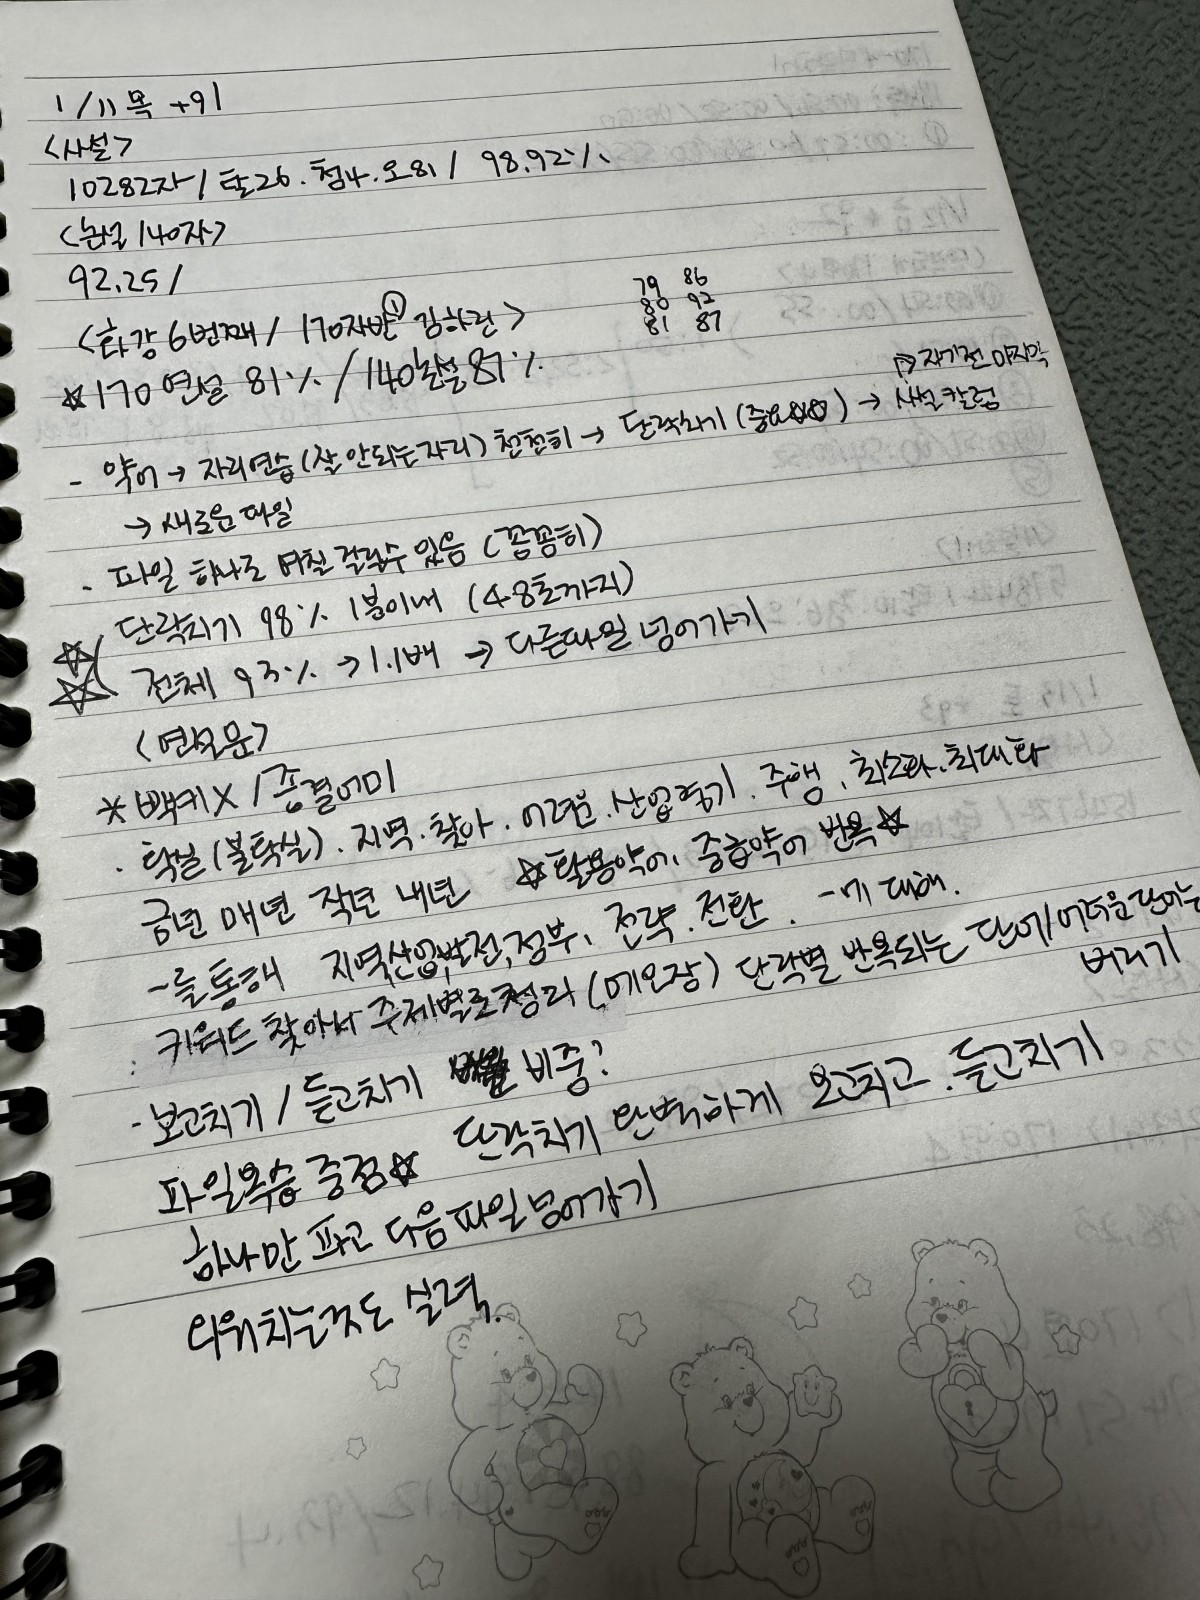 1/11 목 +91
<사설>
10282자/ 탈26. 첨4. 오81/ 98.92%
<논설 140자>
92.25/
<화강 6번째/ 170자반① 김하린>
79 86
80 92
81 87
☆170 연설 81% /140논설 87%
- 약어→ 자리연습(잘 안되는자리) 천천히→ 단락치기 (중요☆☆☆) → 사설칼럼
↱자기전 마지막
→새로운 파일
· 파일 하나로 며칠 걸릴수 있음 (꼼꼼히)
☆ 단락치기 98% 1분이내 (48초까지)
☆ 전체 93% →1.1배 → 다른파일 넘어가기
<연설문>
*백키X /종결어미
· 확실(불확실). 지역. 찾아. 어려운. 산업경기. 주행. 최소화. 최대화
금년 매년 작년 내년 ☆활용약어, 중급약어 반복☆
-을 통해 지역산업발전, 정부, 전략. 전환. -에 대해.
: 키워드 찾아서 주제별로정리 (메모장) 단락별 반복되는 단어/어려운단어는
버리기
- 보고치기/듣고치기 비중?
파일복습 중점☆ 단락치기 완벽하게 보고치고. 듣고치기
하나만 파고 다음파일 넘어가기
외워치는것도 실력.